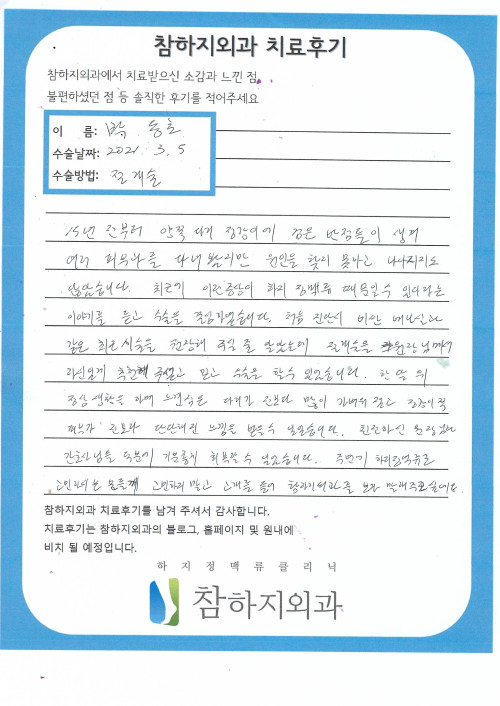 참하지외과 치료후기
참하지외과에서 치료받으신 소감과 느낀 점,
불편하셨던 점 등 솔직한 후기를 적어주세요
이 름: 박 동호
수술날짜: 2021. 3. 5
수술방법: 절제술
15년 전부터 양쪽 다리 정강이에 검은 반점들이 생겨
여러 피부과를 다녀 봤지만 원인을 찾지 못하고 나아지지도
않았습니다. 최근에 이런증상이 하지 정맥류 때문일수 있다라는
이야기를 듣고 수술을 결심하였습니다. 처음 진단시 베나실과
같은 최근 시술을 권장해 주실 줄 알았는데 절제술을 원장님께서
추천해 주셨고 믿고 수술을 할수 있었습니다. 한달 뒤
정상 생활을 하며 느낀점은 다리가 전보다 많이 가벼워 졌고 정강이쪽
피부가 전보다 단단해진 느낌을 받을수 있었습니다. 친절하신 원장님과
간호사님들 덕분에 기분좋게 회복할 수 있었습니다. 주변에 하지정맥류로
고민하시는 분들께 고민하지 말고 소개를 들어 참하지외과를 말해주고 싶네요.
참하지외과 치료후기를 남겨 주셔서 감사합니다.
치료후기는 참하지외과의 블로그, 홈페이지 및 원내에
비치 될 예정입니다.
하지정맥류클리닉
참하지외과